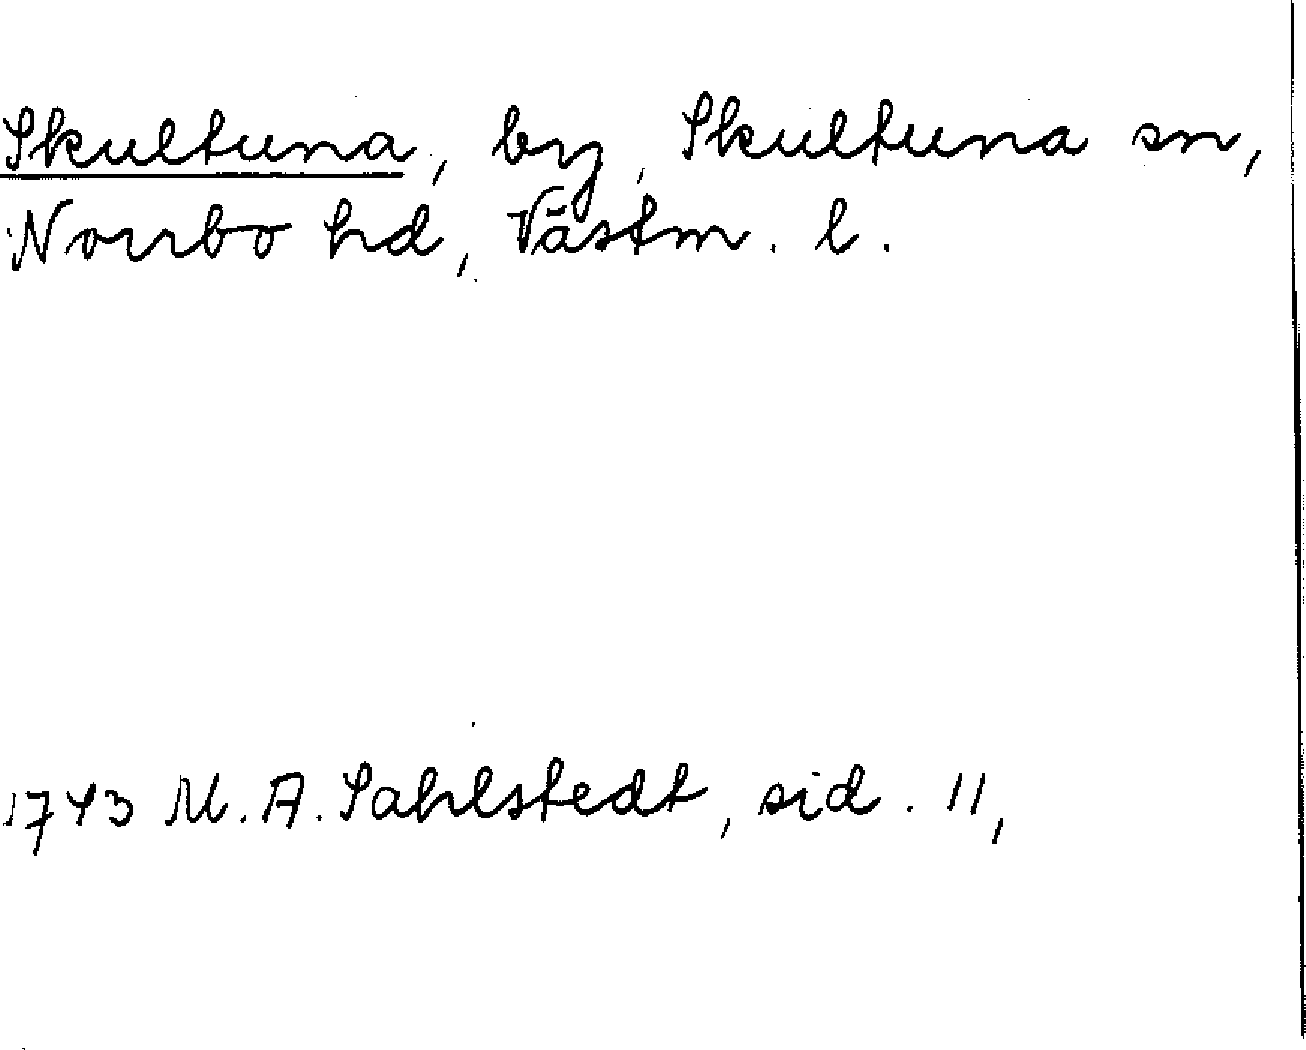 Skultuna, by, Skultuna sn,
Norrbo hd, Västm. l.
1743 M. A. Sahlstedt, sid. 11,